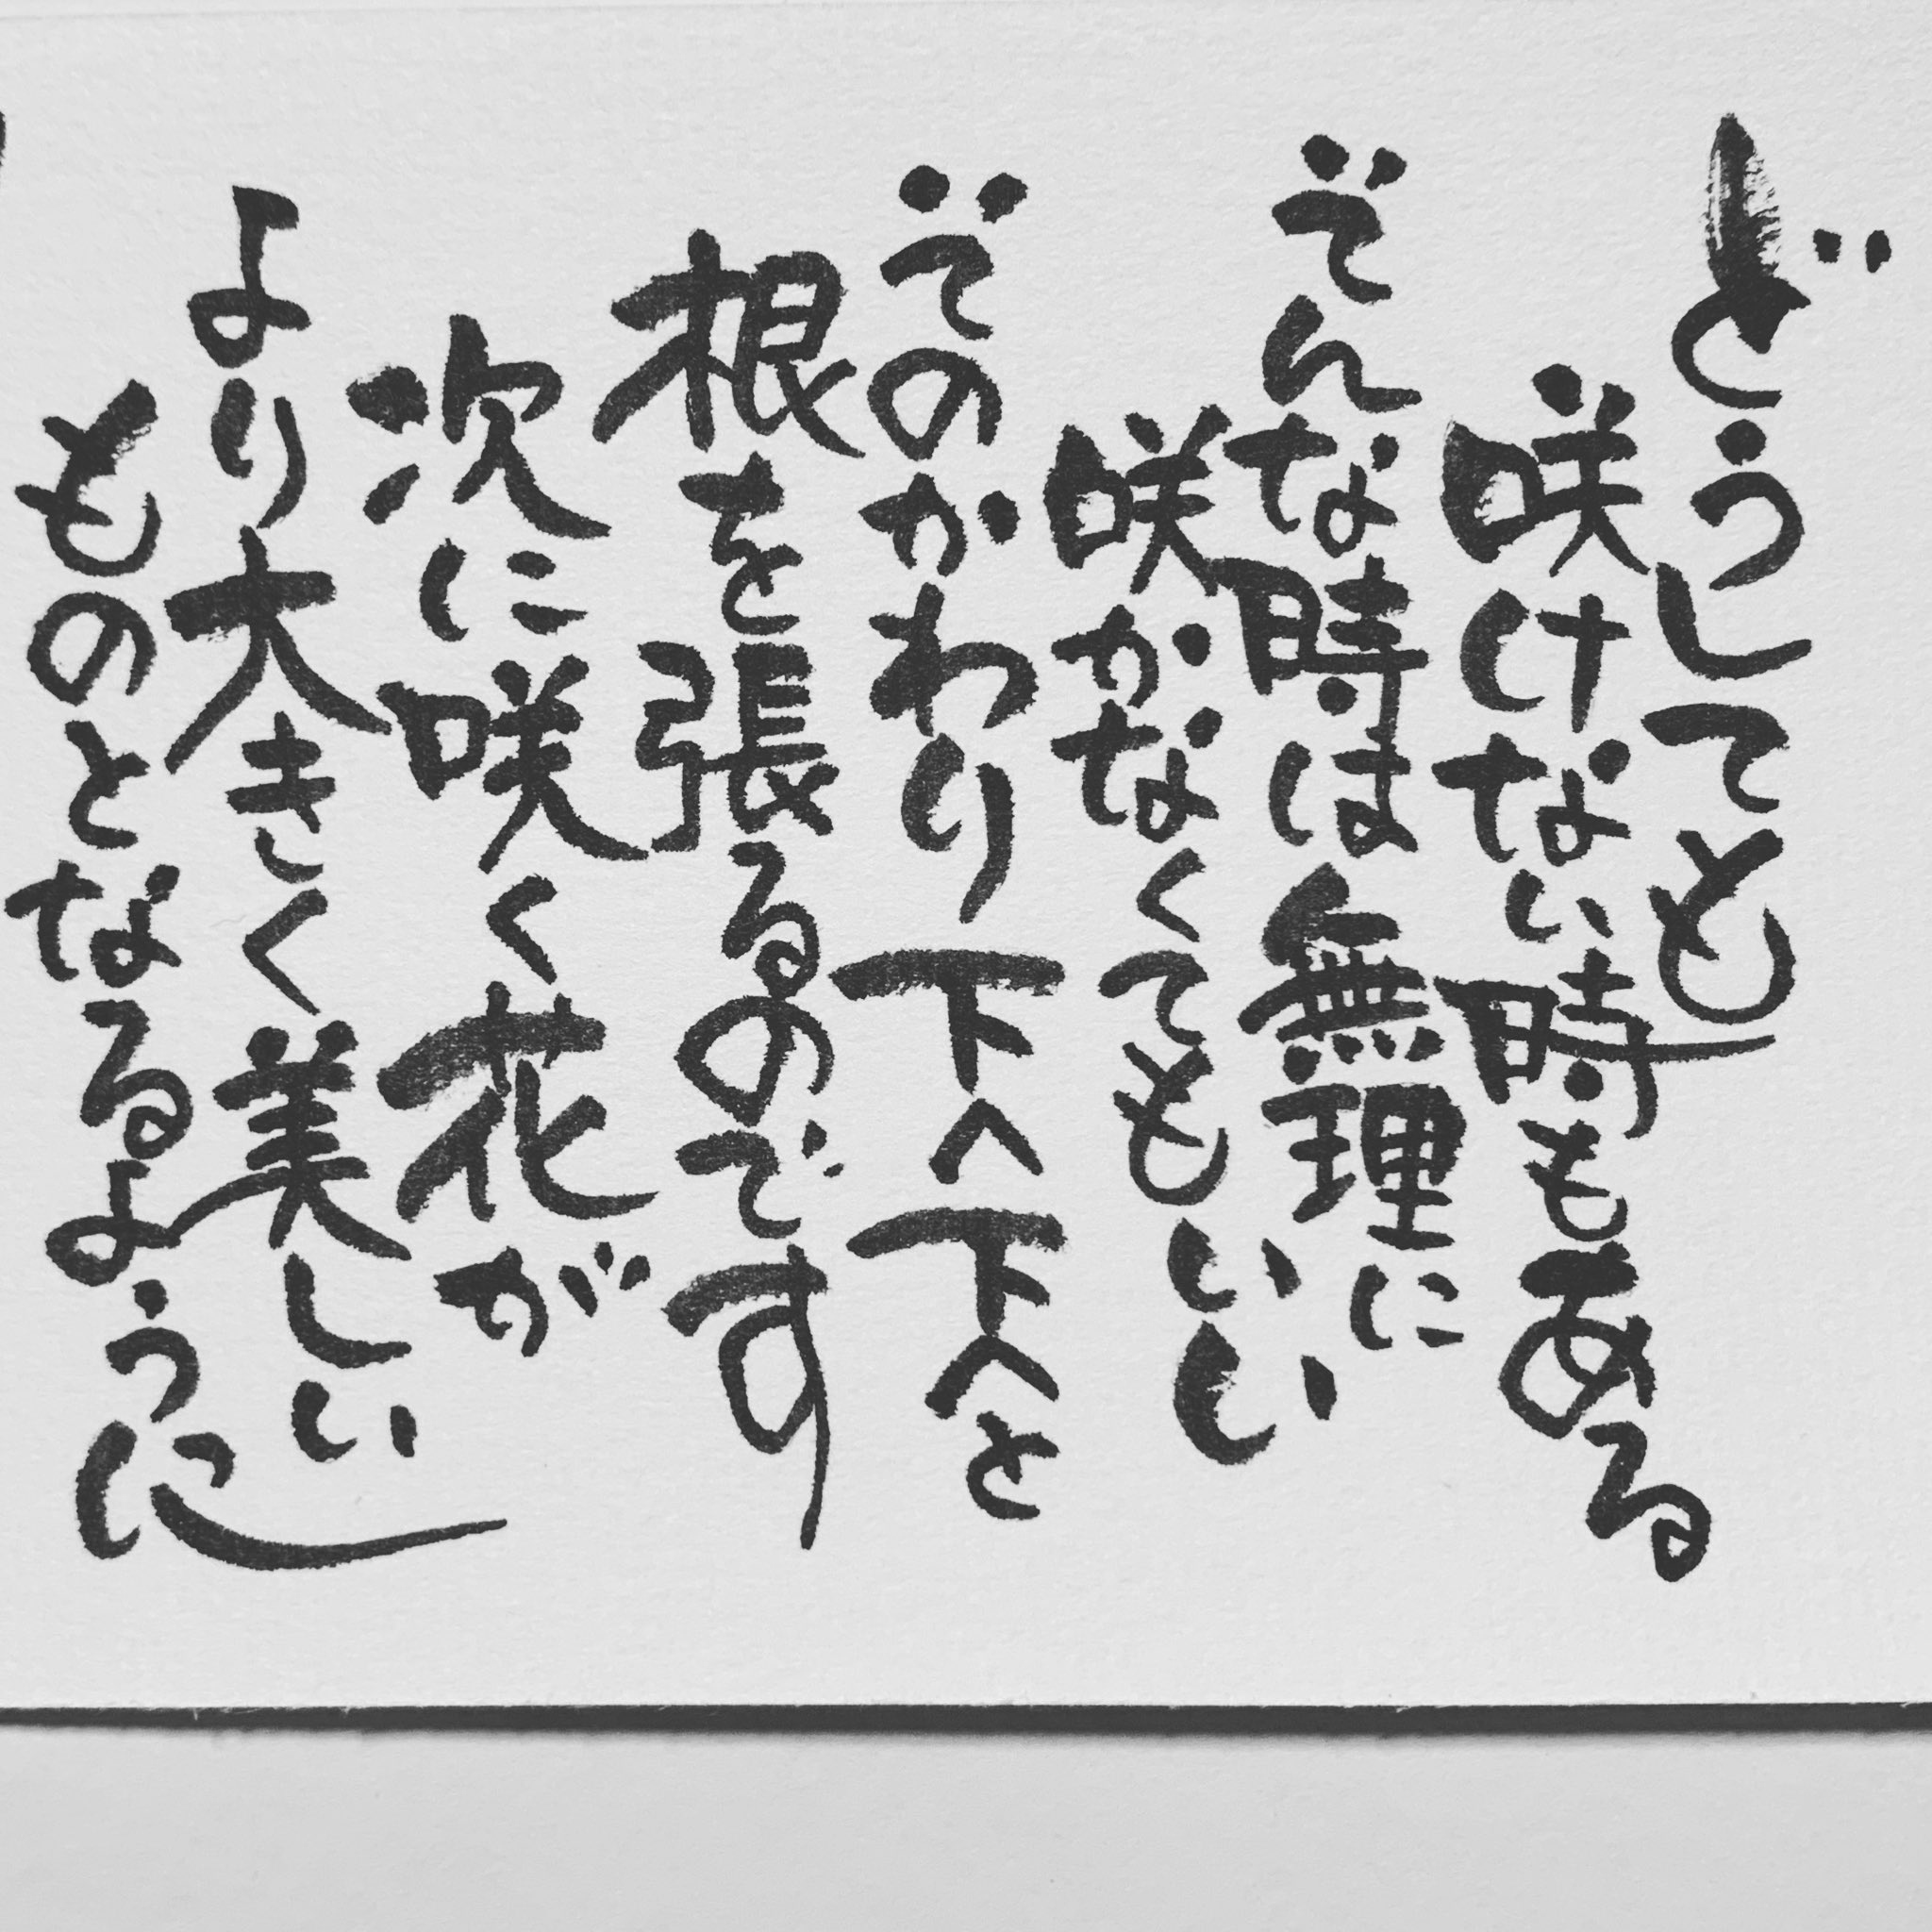 どうしても
咲けない時もある
そんな時は無理に
咲かなくてもいい
そのかわり下へ下へと
根を張るのです
次に咲く花が
より大きく美しい
ものとなるように